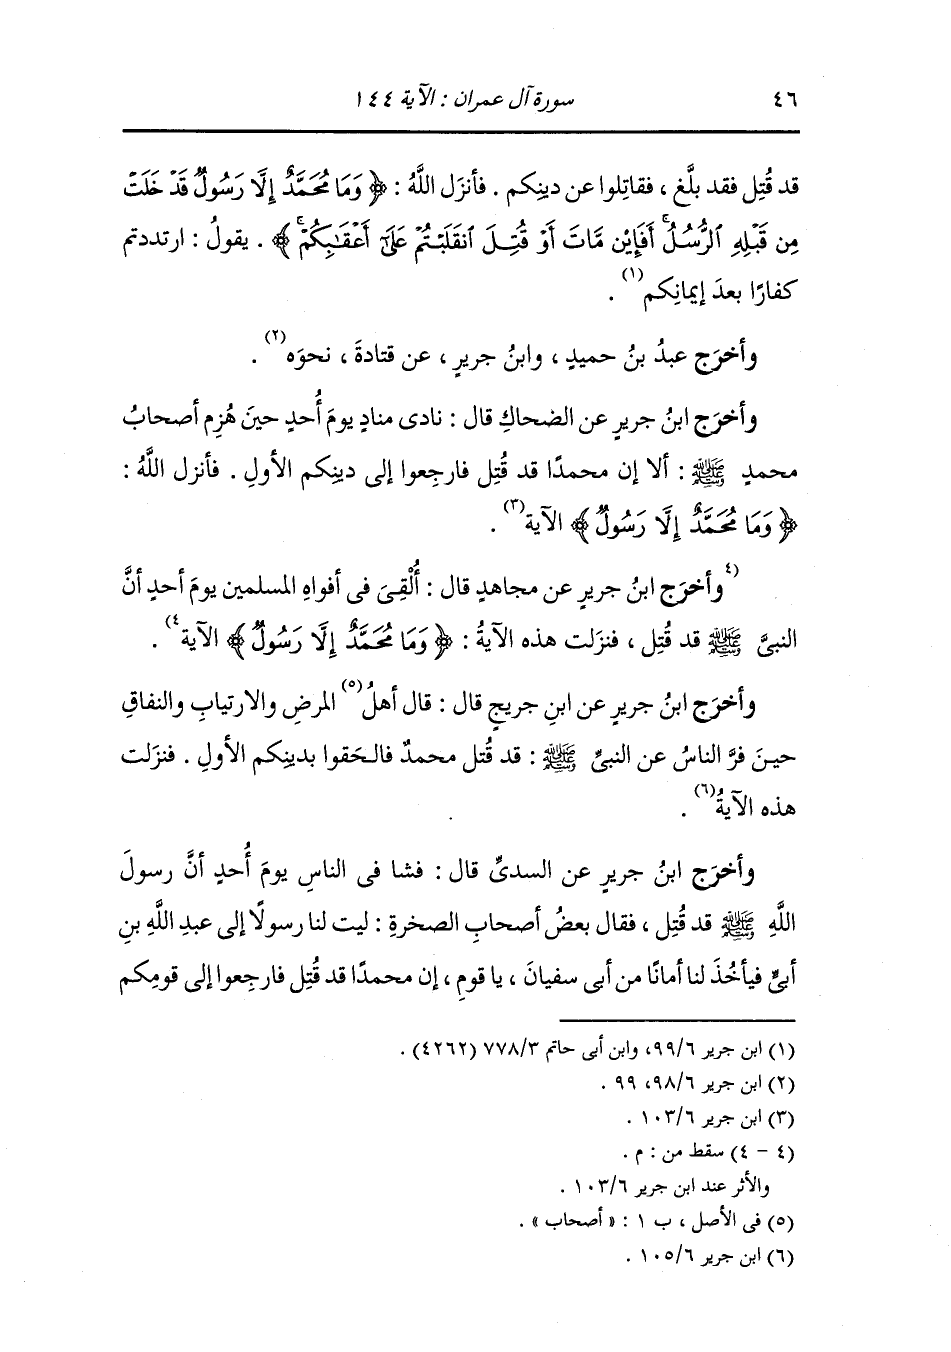 ٤٦ سورة آل عمران : الآية ١٤٤
قد قُتِل فقد بلَّغ ، فقاتِلوا عن دينِكم . فأنزَل اللَّهُ : ﴿ وَمَا مُحَمَّدٌ إِلَّا رَسُولٌ قَدْ خَلَتْ
مِن قَبْلِهِ ٱلرُّسُلُ ۚ أَفَإِيْن مَّاتَ أَوْ قُتِلَ ٱنقَلَبْتُمْ عَلَىٰٓ أَعْقَـٰبِكُمْ ۚ ﴾ . يقولُ : ارتددتم
كفارًا بعدَ إيمانِكم(١) .
وأخرَج عبدُ بنُ حميدٍ ، وابنُ جريرٍ ، عن قتادةَ ، نحوَه(٢) .
وأخرَج ابنُ جريرٍ عن الضحاكِ قال : نادى منادٍ يومَ أُحدٍ حينَ هُزِم أصحابُ
محمدٍ ﷺ : ألا إن محمدًا قد قُتِل فارجِعوا إلى دينِكم الأولِ . فأنزل اللَّهُ :
﴿ وَمَا مُحَمَّدٌ إِلَّا رَسُولٌ ﴾ الآية(٣) .
(٤وأخرَج ابنُ جريرٍ عن مجاهدٍ قال : أُلْقِىَ فى أفواهِ المسلمين يومَ أحدٍ أنَّ
النبىَّ ﷺ قد قُتِل ، فنزَلت هذه الآيةُ : ﴿ وَمَا مُحَمَّدٌ إِلَّا رَسُولٌ ﴾ الآية٤) .
وأخرَج ابنُ جريرٍ عن ابنِ جريجٍ قال : قال أهلُ(٥) المرضِ والارتيابِ والنفاقِ
حينَ فرَّ الناسُ عن النبىِّ ﷺ : قد قُتل محمدٌ فالحَقوا بدينِكم الأولِ . فنزَلت
هذه الآيةُ(٦) .
وأخرَج ابنُ جريرٍ عن السدىِّ قال : فشا فى الناسِ يومَ أُحدٍ أنَّ رسولَ
اللَّهِ ﷺ قد قُتِل ، فقال بعضُ أصحابِ الصخرةِ : ليت لنا رسولًا إلى عبدِ اللَّهِ بنِ
أبىٍّ فيأخُذَ لنا أمانًا من أبى سفيانَ ، يا قومِ ، إن محمدًا قد قُتِل فارجِعوا إلى قومِكم
(١) ابن جرير ٩٩/٦، وابن أبى حاتم ٧٧٨/٣ (٤٢٦٢) .
(٢) ابن جرير ٩٨/٦، ٩٩ .
(٣) ابن جرير ١٠٣/٦ .
(٤ - ٤) سقط من : م .
والأثر عند ابن جرير ١٠٣/٦ .
(٥) فى الأصل ، ب ١ : « أصحاب » .
(٦) ابن جرير ١٠٥/٦ .